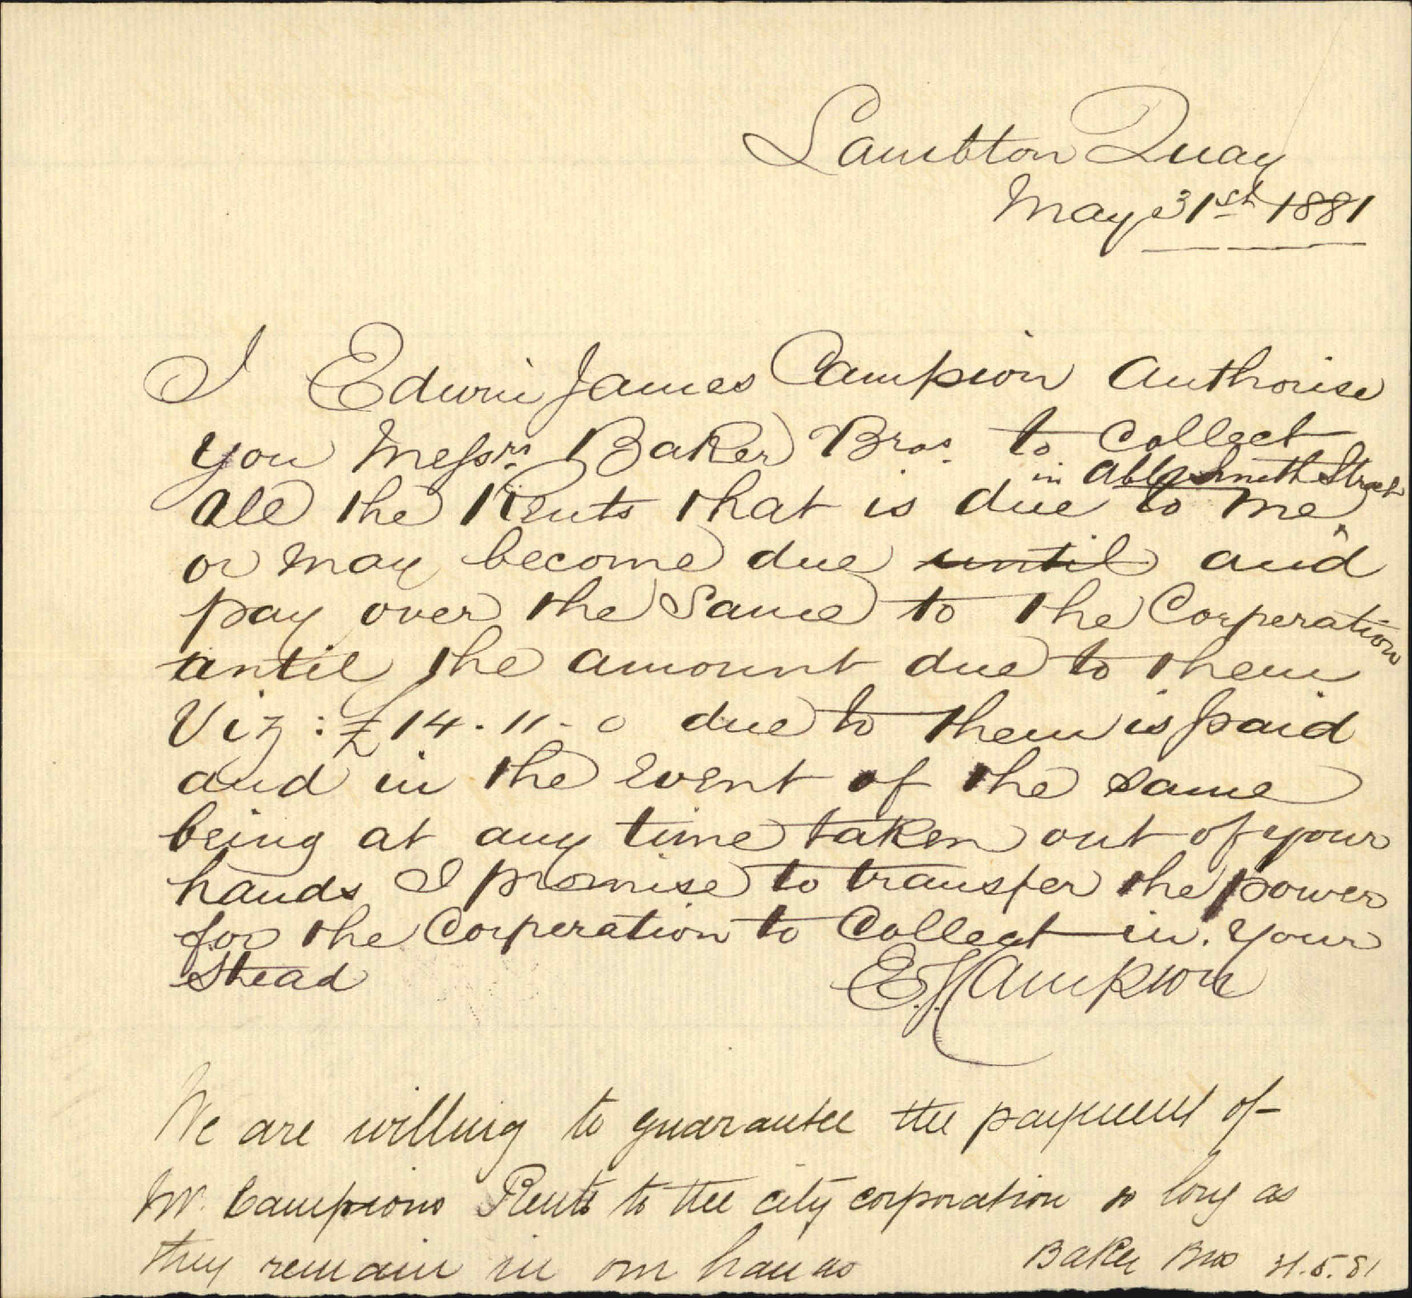 Lambton Quay
May 31st 1881
I Edwin James Campion Authorise
you Messrs. Baker Bros. to Collect
in Abel Smith Street
All the Rents that is due to me
or may become due until and
pay over the Same to the Corperation
until the amount due to them
Viz : £14 . 11 - 0 due to them is paid
and in the Event of the same
being at any time taken out of your
hands I promise to transfer the power
for the Corperation to Collect in your
Stead
E. J. Campion
We are willing to guarantee the payment of
Mr. Campions Rents to the city corporation so long as
they remain in our hands
Baker Bros 31.5.81